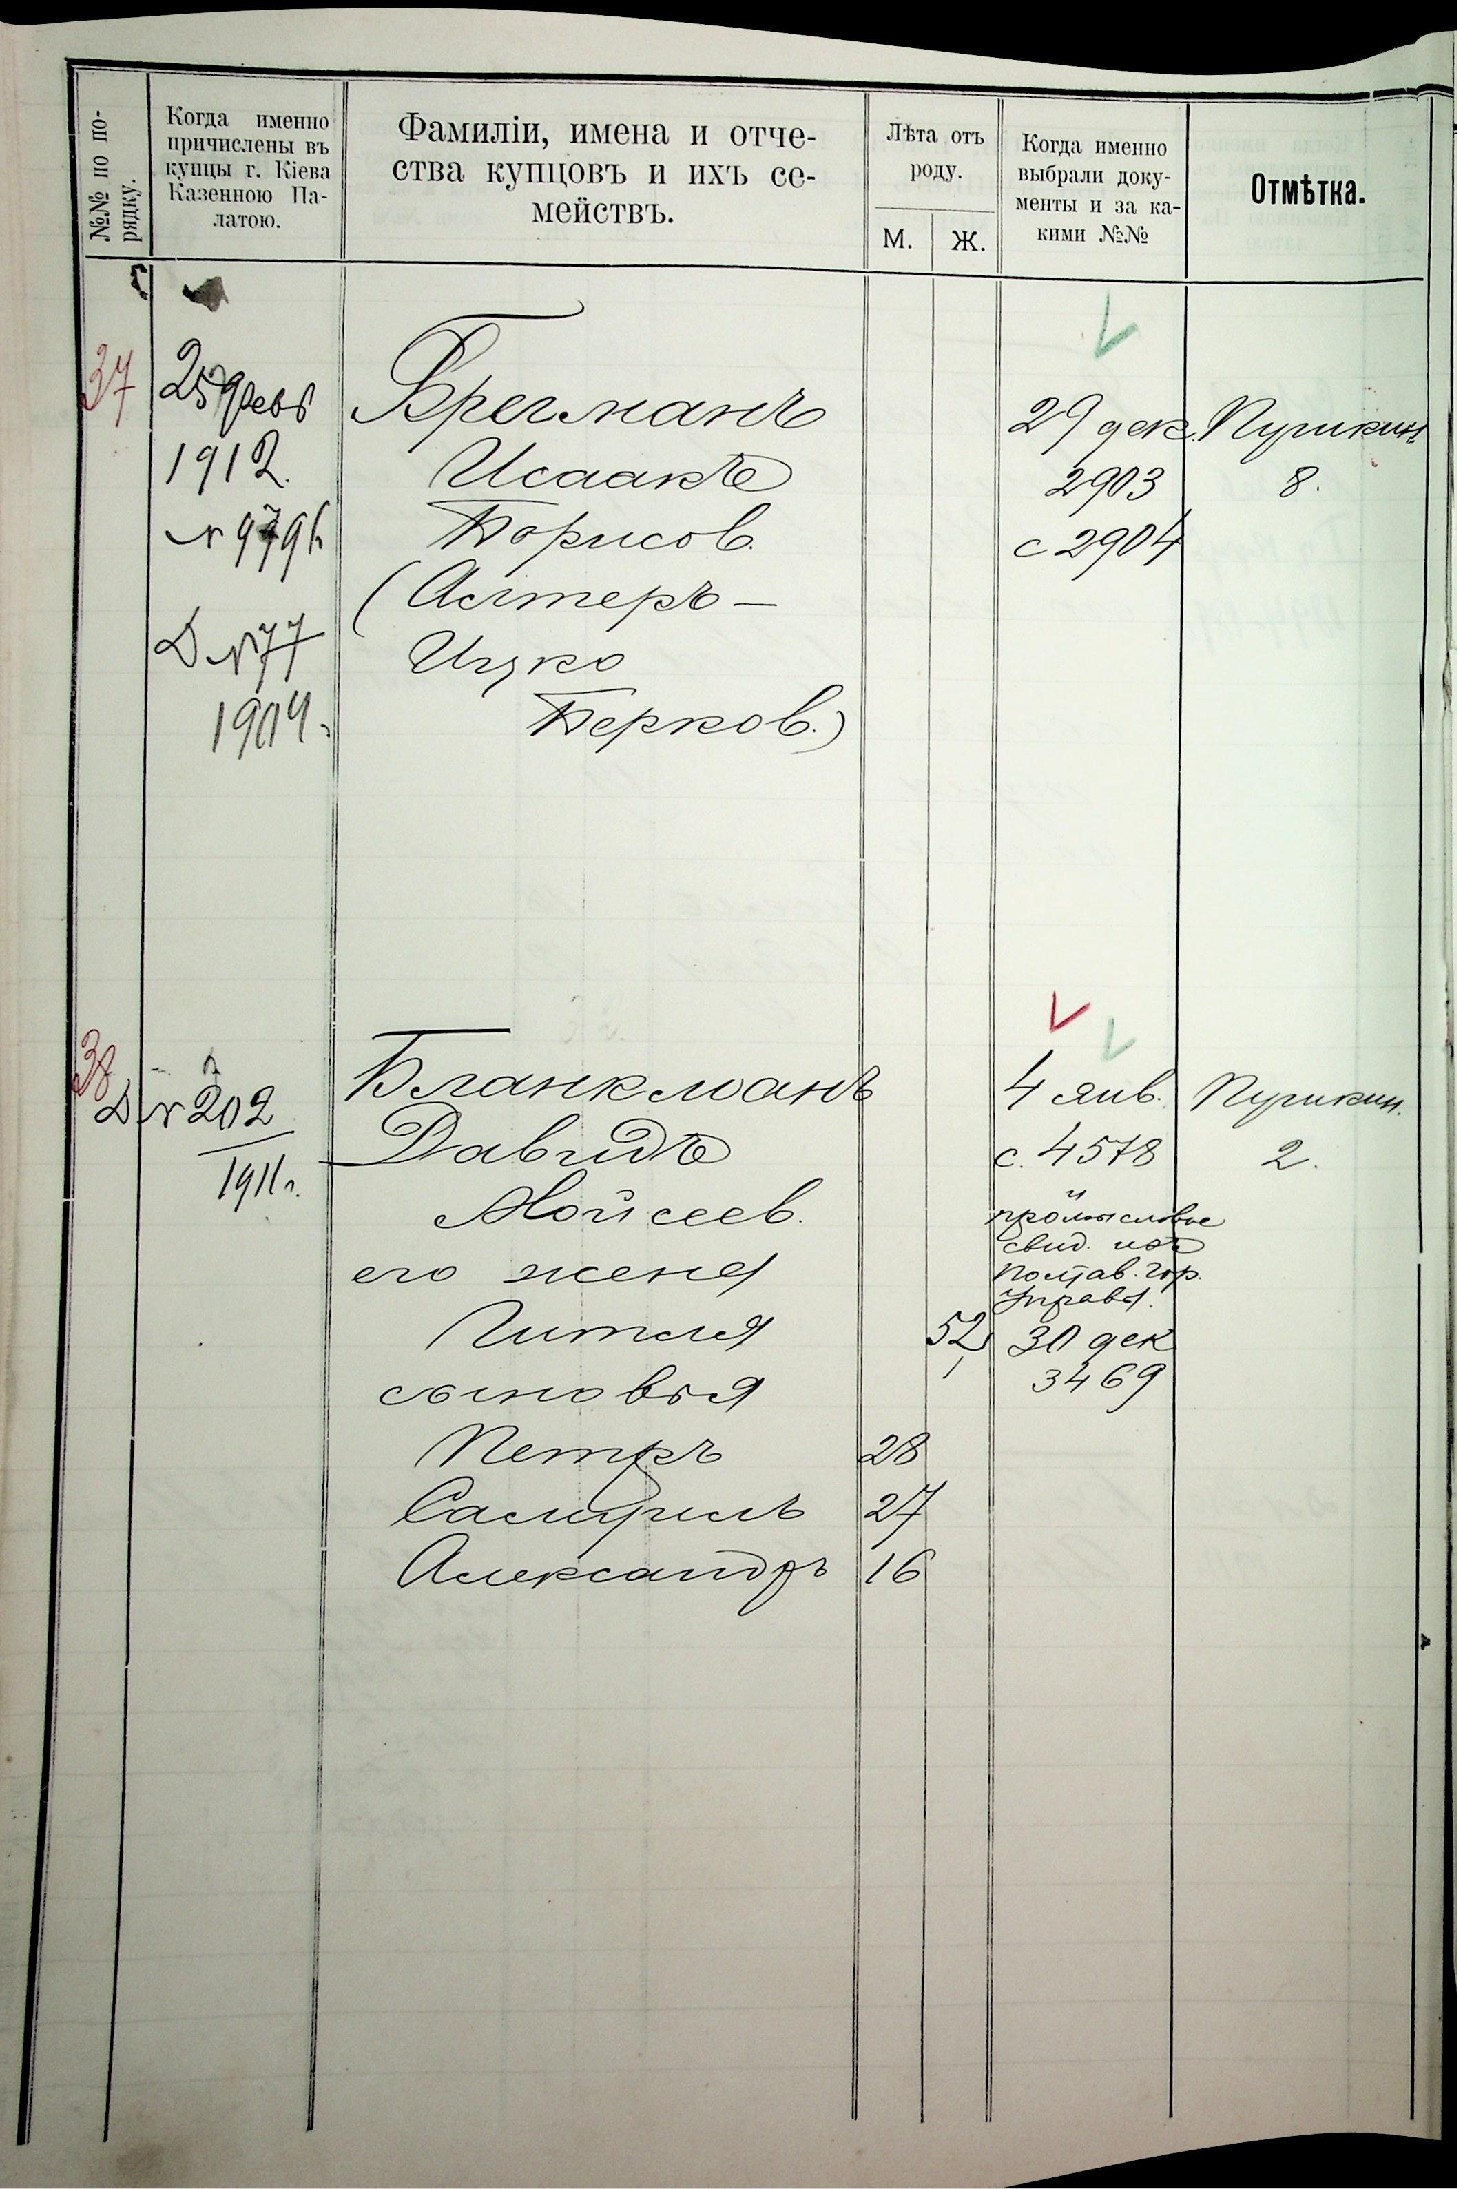 №№ по по-
рядку.
Когда именно
причислены въ
купцы г. Кіева
Казенною Па-
латою.
Фамиліи, имена и отче-
ства купцовъ и ихъ се-
мействъ.
Лѣта отъ
роду.
М.
Ж.
Когда именно
выбрали доку-
менты и за ка-
кими №№
Отмѣтка.
37
25 Февр
1912.
Д № 77
1904.
Брегманъ
Исаакъ
Борисов.
(Алтеръ-
Ицко
Берков.)
29 дек.
2903
с 2904
Пушкин.
8.
38
Д № 202
1911 г.
Бланкманъ
Давидъ
Мойсеев.
его жена
Гителя
сыновья
Петръ
Самуилъ
Александръ
52
28
27
16
4 янв.
с. 4578
и
промысловое
свид. изъ
Полтав. Гор.
Управы.
30 дек
3469
Пушкин.
2.